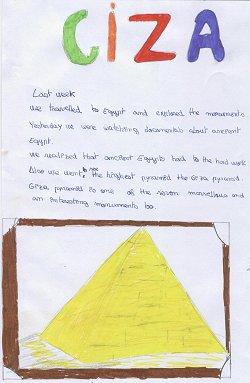 CiZA
Last week
We travelled to Egypt and explored the monuments
Yesterday we were watching documentals about ancient
Egypt.
We realized that ancient Egypts had to the hard work
Also we went to see the highest pyramid the Giza pyramid.
Giza pyramid is one of the seven marvellous and
an interesting monuments too.